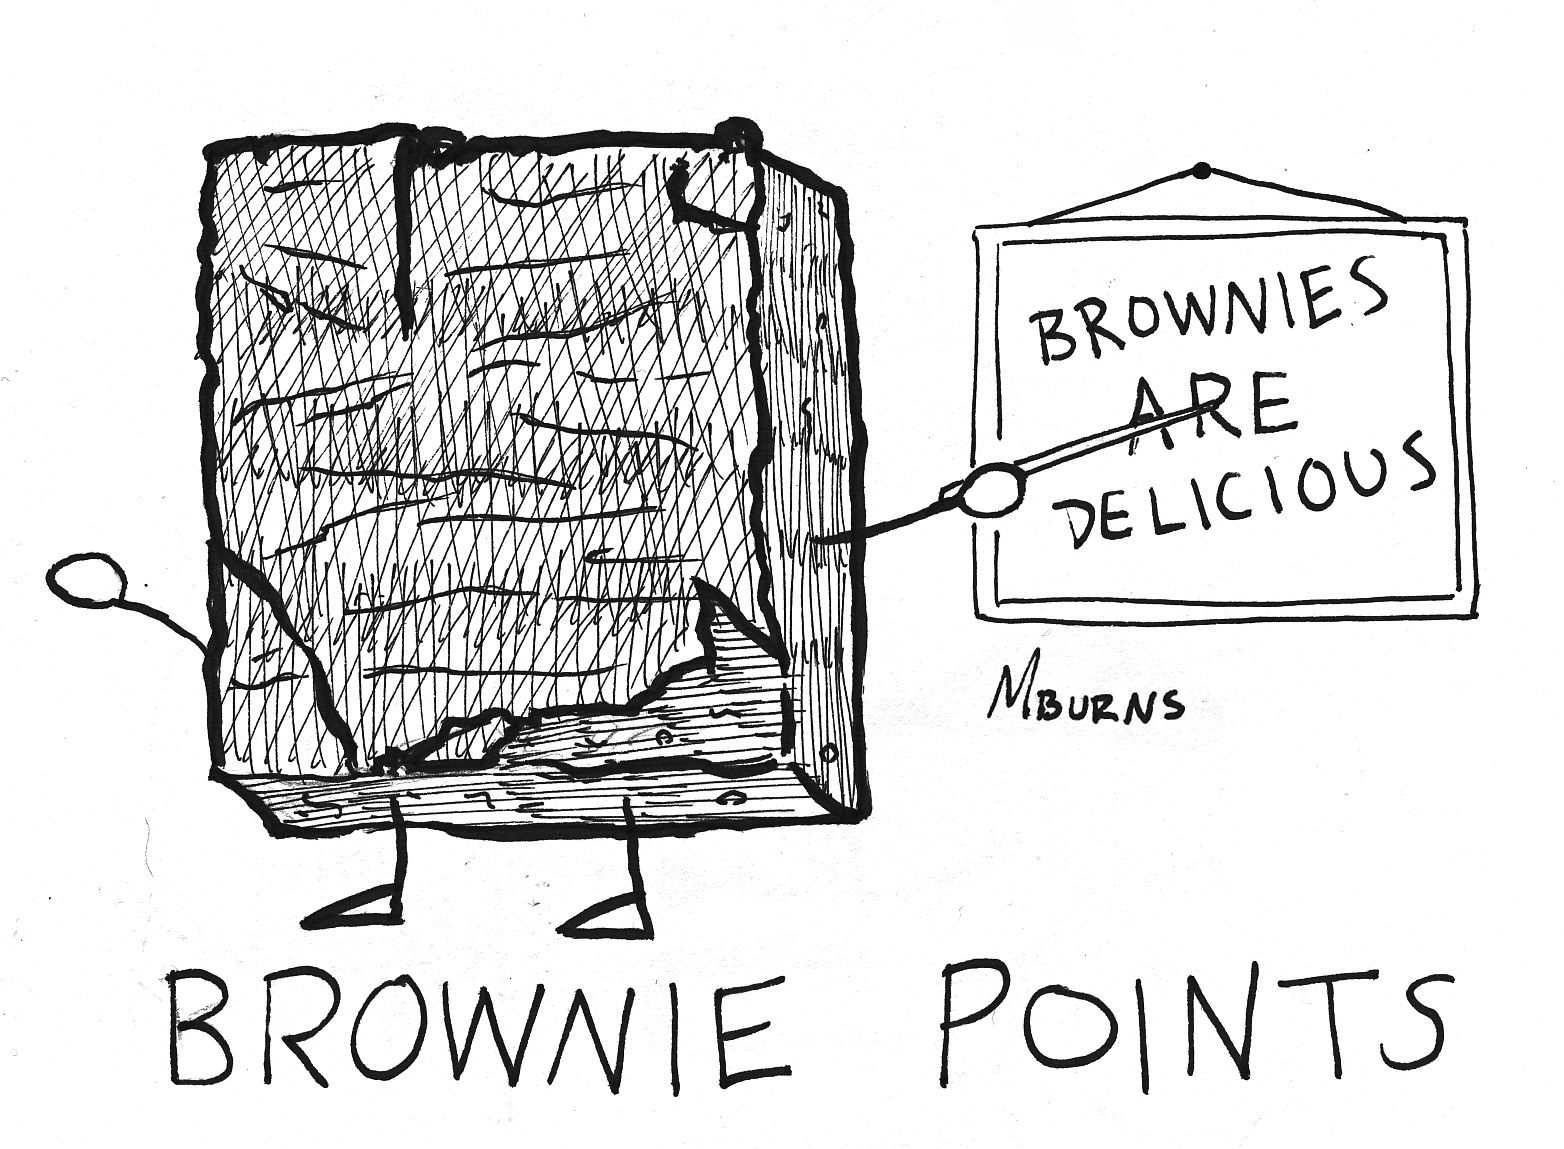 BROWNIES
ARE
DELICIOUS
MBURNS
BROWNIE POINTS